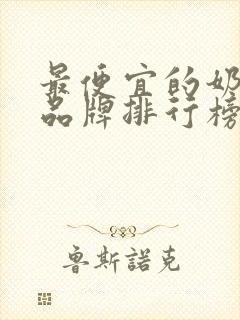 最便宜的奶
品牌排行榜
鲁斯諾克